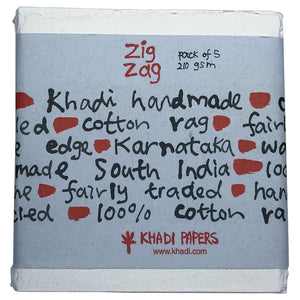 Zig
Zag
pack of 5
210 gsm
Khadi handmade
cotton rag fair
edge Karnataka
made South India 100
fairly traded han
100% cotton rag
KHADI PAPERS
www.khadi.com